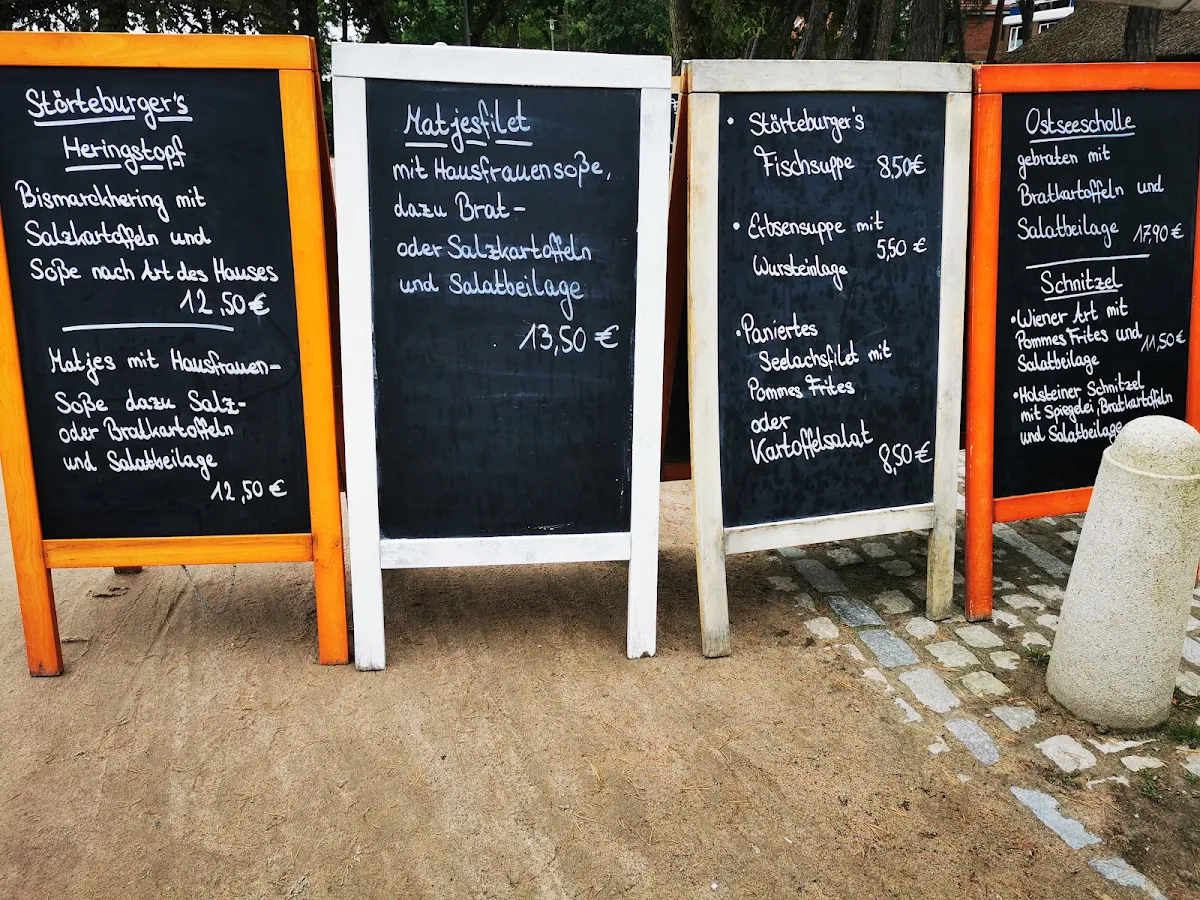 Störteburger's
Heringstopf
Bismarckhering mit
Salzkartoffeln und
Soße nach Art des Hauses
12,50€
Matjes mit Hausfrauen-
Soße dazu Salz-
oder Bratkartoffeln
und Salatbeilage
12,50€
Matjesfilet
mit Hausfrauensoße,
dazu Brat-
oder Salzkartoffeln
und Salatbeilage
13,50 €
• Störteburger's
Fischsuppe 8,50€
• Erbsensuppe mit
5,50 €
Wursteinlage
• Paniertes
Seelachsfilet mit
Pommes Frites
oder
Kartoffelsalat
8,50€
Ostseescholle
gebraten mit
Bratkartoffeln und
Salatbeilage 17,90€
Schnitzel
• Wiener Art mit
Pommes Frites und 11,50€
Salatbeilage
• Holsteiner Schnitzel
mit Spiegelei, Bratkartoffeln
und Salatbeilage